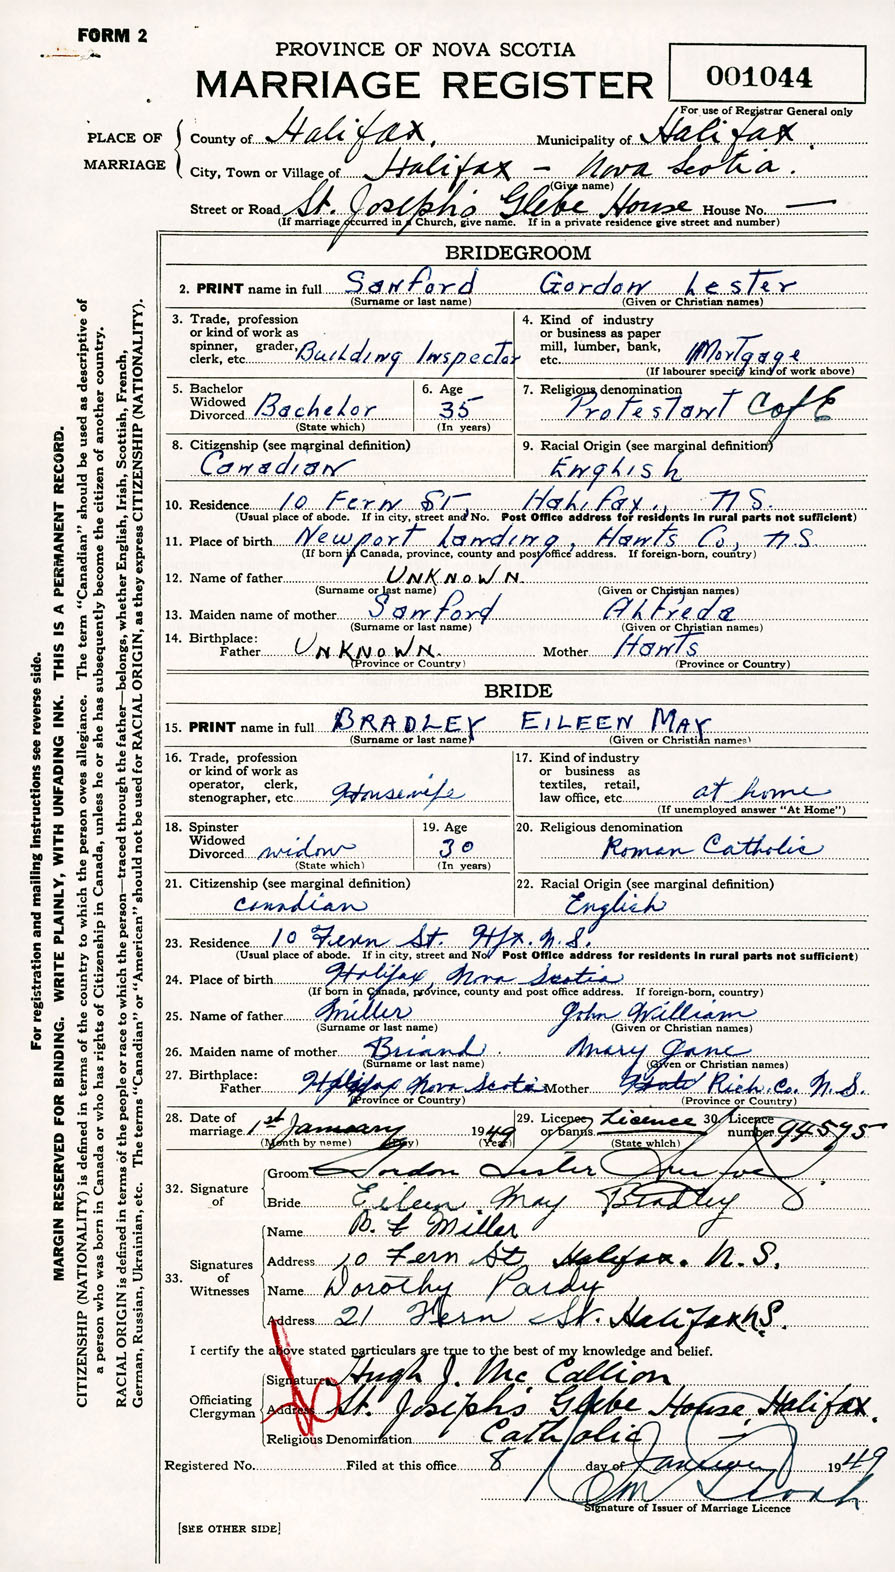 FORM 2
PROVINCE OF NOVA SCOTIA
MARRIAGE REGISTER
001044
For use of Registrar General only
PLACE OF MARRIAGE
County of Halifax, Municipality of Halifax.
City, Town or Village of Halifax – Nova Scotia.
(Give name)
Street or Road St. Joseph's Glebe House House No. —
(If marriage occurred in a Church, give name. If in a private residence give street and number)
BRIDEGROOM
2. PRINT name in full Sanford Gordon Lester
(Surname or last name) (Given or Christian names)
3. Trade, profession or kind of work as spinner, grader, clerk, etc. Building Inspector
4. Kind of industry or business as paper mill, lumber, bank, etc. Mortgage
(If labourer specify kind of work above)
5. Bachelor Widowed Divorced Bachelor
(State which)
6. Age 35
(In years)
7. Religious denomination Protestant C of E
8. Citizenship (see marginal definition) Canadian
9. Racial Origin (see marginal definition) English
10. Residence 10 Fern St, Halifax., N.S.
(Usual place of abode. If in city, street and No. Post Office address for residents in rural parts not sufficient)
11. Place of birth Newport Landing, Hants Co, N.S.
(If born in Canada, province, county and post office address. If foreign-born, country)
12. Name of father UNKNOWN.
(Surname or last name) (Given or Christian names)
13. Maiden name of mother Sanford Alfreda
(Surname or last name) (Given or Christian names)
14. Birthplace: Father UNKNOWN. Mother Hants
(Province or Country) (Province or Country)
BRIDE
15. PRINT name in full BRADLEY EILEEN MAY
(Surname or last name) (Given or Christian names)
16. Trade, profession or kind of work as operator, clerk, stenographer, etc. Housewife
17. Kind of industry or business as textiles, retail, law office, etc. at home
(If unemployed answer "At Home")
18. Spinster Widowed Divorced widow
(State which)
19. Age 30
(In years)
20. Religious denomination Roman Catholic
21. Citizenship (see marginal definition) Canadian
22. Racial Origin (see marginal definition) English
23. Residence 10 Fern St. Hfx. N.S.
(Usual place of abode. If in city, street and No. Post Office address for residents in rural parts not sufficient)
24. Place of birth Halifax, Nova Scotia
(If born in Canada, province, county and post office address. If foreign-born, country)
25. Name of father Miller John William
(Surname or last name) (Given or Christian names)
26. Maiden name of mother Briand. Mary Jane
(Surname or last name) (Given or Christian names)
27. Birthplace: Father Halifax Nova Scotia Mother Rich. Co. N.S.
(Province or Country) (Province or Country)
28. Date of marriage 1st January 1949
(Month by name) (Day) (Year)
29. Licence or banns Licence
(State which)
30. Licence number 94595
32. Signature of
Groom Gordon Lester
Bride Eileen May Bradley
33. Signatures of Witnesses
Name Miller
Address 10 Fern St, Halifax. N.S.
Name Dorothy Pardy
Address 21 Fern St. Halifax N.S.
I certify the above stated particulars are true to the best of my knowledge and belief.
Officiating Clergyman
Signature Hugh J. McCallion
Address St. Joseph's Glebe House, Halifax.
Religious Denomination Catholic
Registered No. Filed at this office 8 day of January 1949
Signature of Issuer of Marriage Licence
[SEE OTHER SIDE]
For registration and mailing instructions see reverse side.
MARGIN RESERVED FOR BINDING. WRITE PLAINLY, WITH UNFADING INK. THIS IS A PERMANENT RECORD.
CITIZENSHIP (NATIONALITY) is defined in terms of the country to which the person owes allegiance. The term "Canadian" should be used as descriptive of
a person who was born in Canada or who has rights of Citizenship in Canada, unless he or she has subsequently become the citizen of another country.
RACIAL ORIGIN is defined in terms of the people or race to which the person—traced through the father—belongs, whether English, Irish, Scottish, French,
German, Russian, Ukrainian, etc. The terms "Canadian" or "American" should not be used for RACIAL ORIGIN, as they express CITIZENSHIP (NATIONALITY).